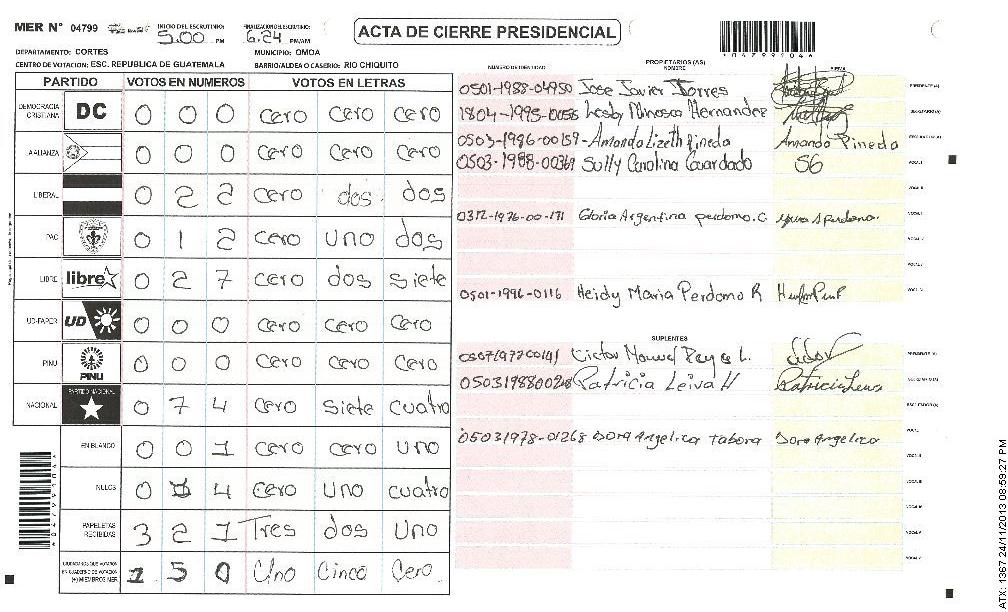 MER N° 04799 INICIO DEL ESCRUTINIO: 5:00 PM FINALIZACION ESCRUTINIO: 6:24 PM/AM ACTA DE CIERRE PRESIDENCIAL
DEPARTAMENTO: CORTES MUNICIPIO: OMOA
CENTRO DE VOTACION: ESC. REPUBLICA DE GUATEMALA BARRIO/ALDEA O CASERIO: RIO CHIQUITO
PARTIDO VOTOS EN NUMEROS VOTOS EN LETRAS
DEMOCRACIA CRISTIANA DC 0 0 0 cero cero cero
ALIANZA 0 0 0 cero cero cero
LIBERAL 0 2 2 cero dos dos
PAC 0 1 2 cero uno dos
LIBRE libre 0 2 7 cero dos siete
UD-FAPER UD 0 0 0 cero cero cero
PINU PINU 0 0 0 cero cero cero
NACIONAL PARTIDO NACIONAL 0 7 4 cero siete cuatro
EN BLANCO 0 0 1 cero cero uno
NULOS 0 1 4 cero uno cuatro
PAPELETAS RECIBIDAS 3 2 1 Tres dos uno
CIUDADANOS QUE VOTARON EN CUADERNO DE VOTACION (+) MIEMBROS MER 1 5 0 Uno Cinco Cero
047991046
PROPIETARIOS (AS)
NUMERO DE IDENTIDAD NOMBRE FIRMA
0501-1988-04950 Jose Javier Torres PRESIDENTE (A)
1804-1995-0056 Lesby Hernandez SECRETARIO (A)
0503-1986-00159 Amanda Lizeth Pineda Amanda Pineda ESCRUTADOR (A)
0503-1988-00369 Sully Carolina Guardado SG VOCAL I
VOCAL II
0312-1976-00-171 Gloria Argentina perdomo. G VOCAL III
VOCAL IV
VOCAL V
0501-1996-0116 Heidy Maria Perdomo R VOCAL VI
SUPLENTES
Victor Manuel Reyes L. PRESIDENTE (A)
Patricia Leiva H Patricia Leiva SECRETARIO (A)
ESCRUTADOR (A)
05031978-01268 Dora Angelica Tabora Dora Angelica VOCAL I
VOCAL II
VOCAL III
VOCAL IV
VOCAL V
VOCAL VI
ATX: 1367 24/11/2013 08:59:27 PM